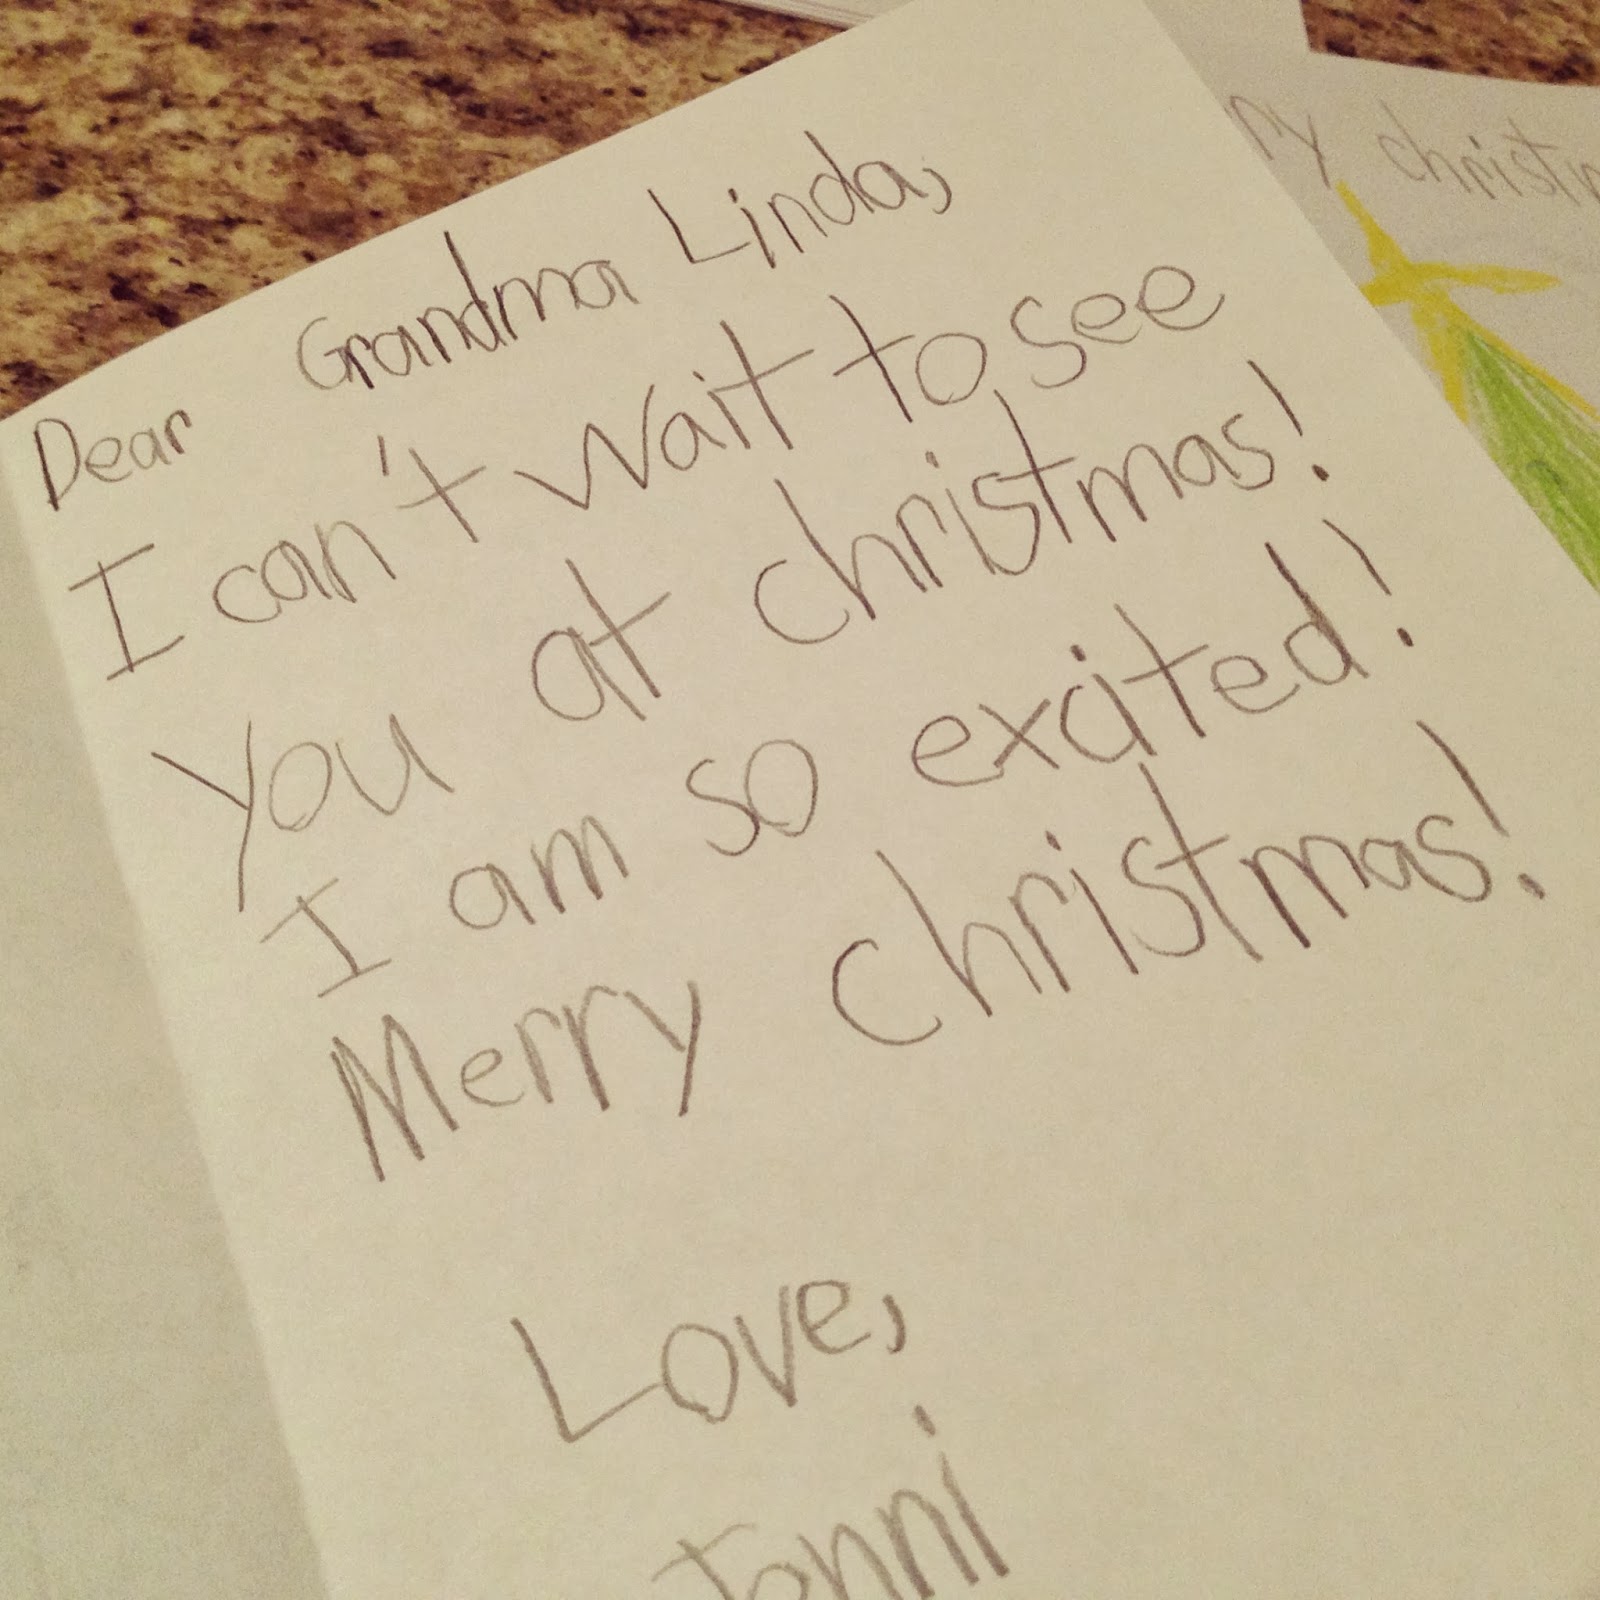 Dear Grandma Linda,
I can't wait to see
you at christmas!
I am so excited!
Merry christmas!
Love,